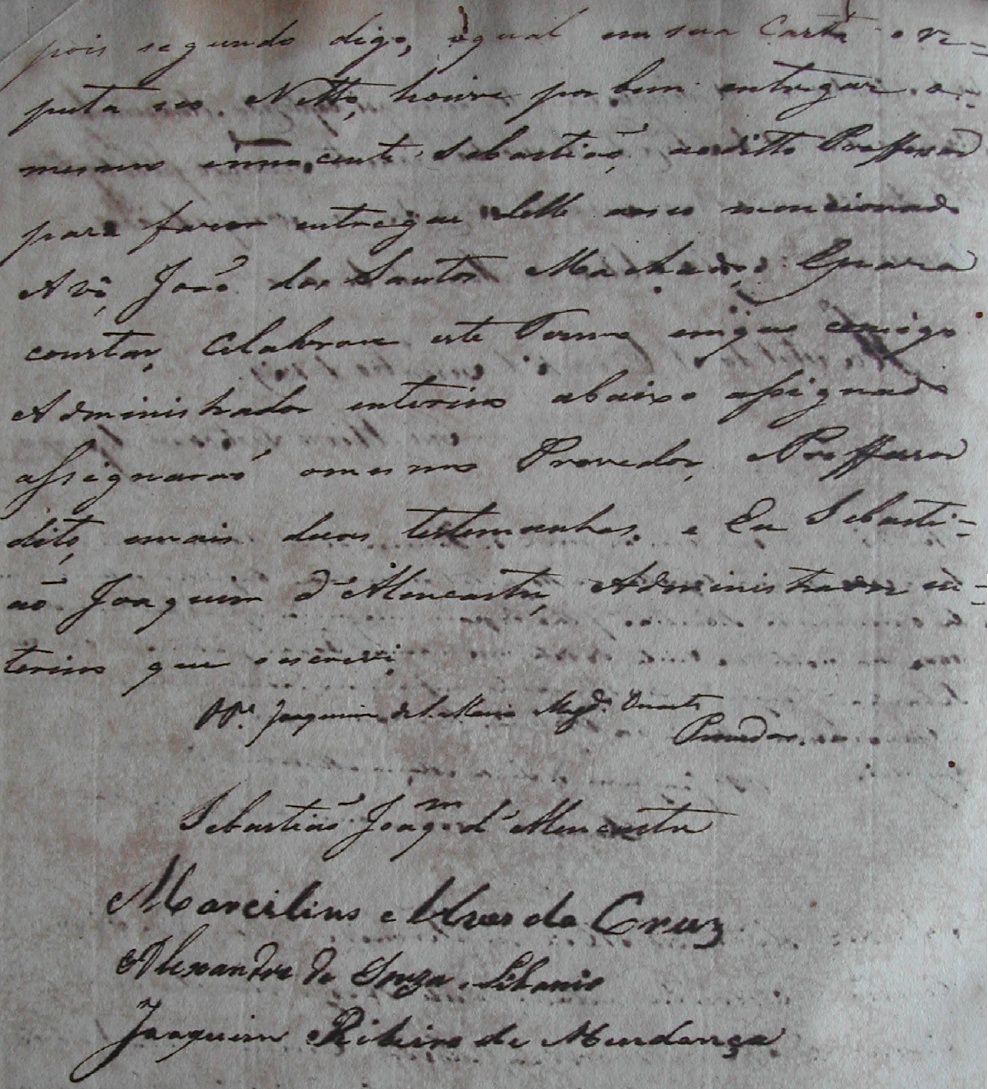 pois segundo digo, o qual em sua Carta o re=
puta seo Netto, houve por bem entregar o
mesmo innocente Sebastião ao ditto Professor
para fazer entrega delle ao seo mencionado
Avô João dos Santos Machado; E para
constar, Celabrou este Termo em que comigo
Administrador interino abaixo assignado
assignarão o mesmo Provedor, Professor
dito, e mais duas testemunhas, e Eu Sebasti=
ão Joaquim d'Alencastre, Administrador in=
terino que o escrevi
Joaquim de S. Maria Magd.ª Duarte
Provedor.
Sebastião Joaq.m d'Alencastre
Marcelino Alves da Cruz
Alexandre de Souza Libanio
Joaquim Ribeiro de Mendonça